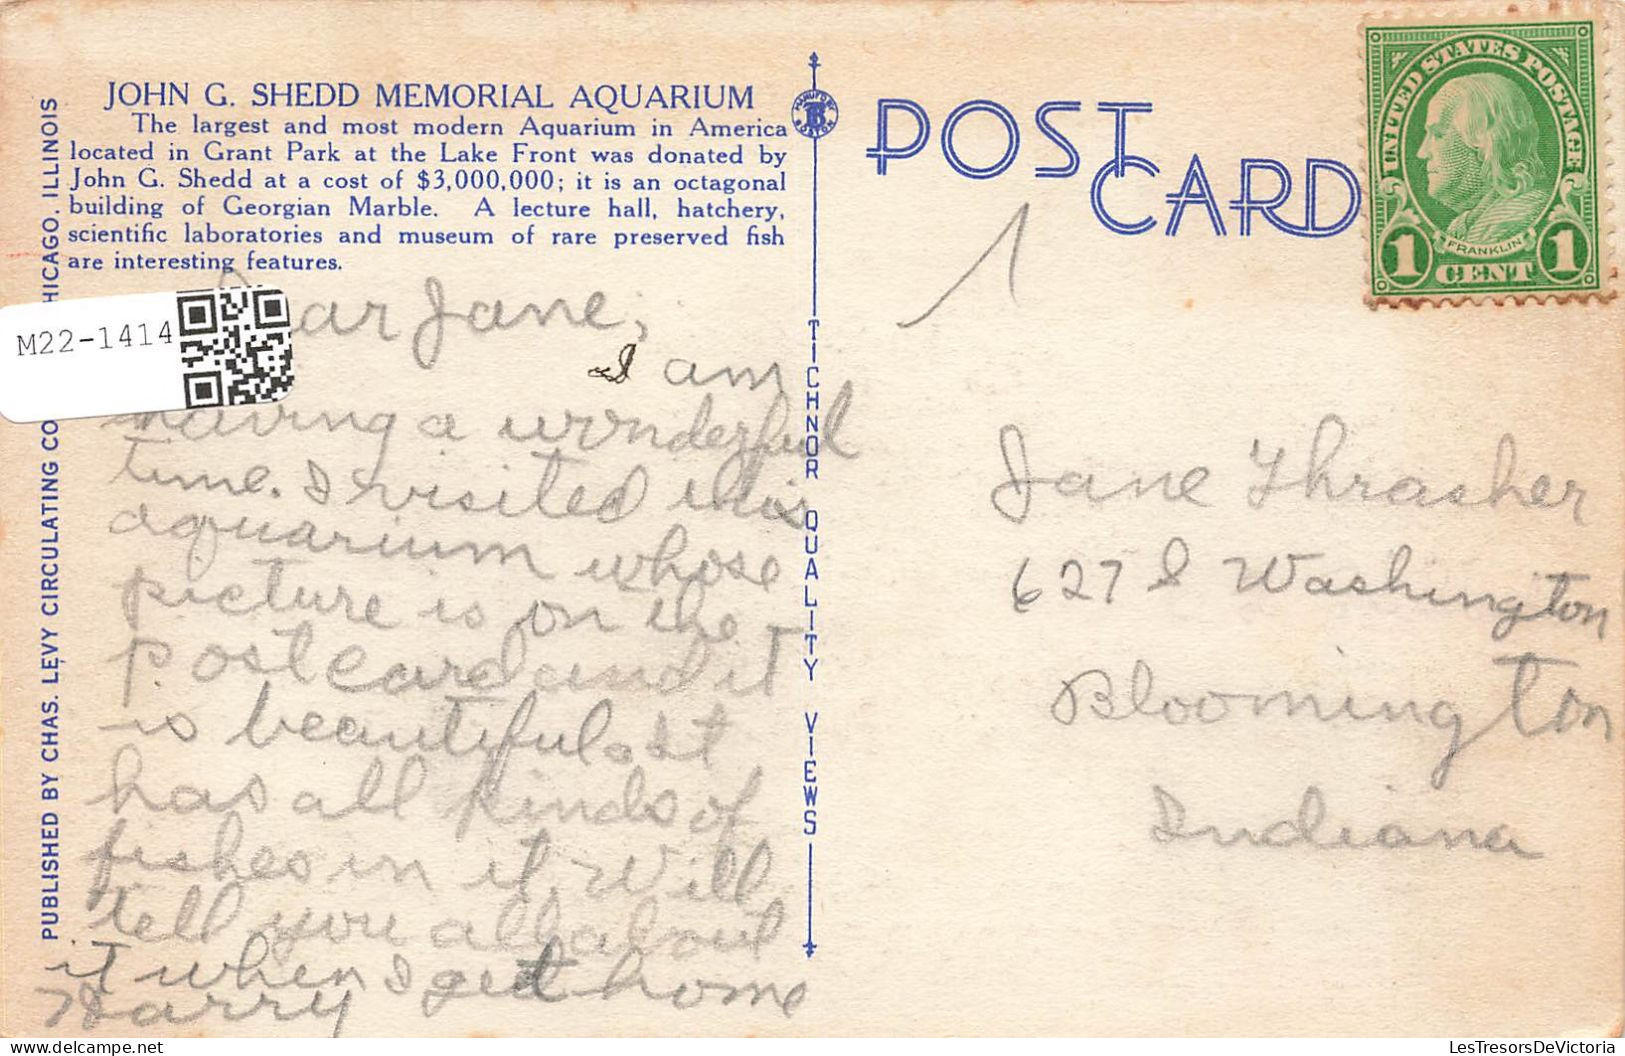 JOHN G. SHEDD MEMORIAL AQUARIUM
The largest and most modern Aquarium in America
located in Grant Park at the Lake Front was donated by
John G. Shedd at a cost of $3,000,000; it is an octagonal
building of Georgian Marble. A lecture hall, hatchery,
scientific laboratories and museum of rare preserved fish
are interesting features.
PUBLISHED BY CHAS. LEVY CIRCULATING CO HICAGO, ILLINOIS
M22-1414
ar Jane,
I am
having a wonderful
time. I visited this
aquarium whose
picture is on the
postcard and it
is beautiful. It
has all kinds of
fishes in it. Will
tell you all about
it when I get home
Harry
MANUF'D BY
TB
BOSTON
TICHNOR QUALITY VIEWS
POST
CARD
1
UNITED STATES POSTAGE
FRANKLIN
1 CENT 1
Jane Thrasher
627 S Washington
Bloomington
Indiana
LesTresorsDeVictoria